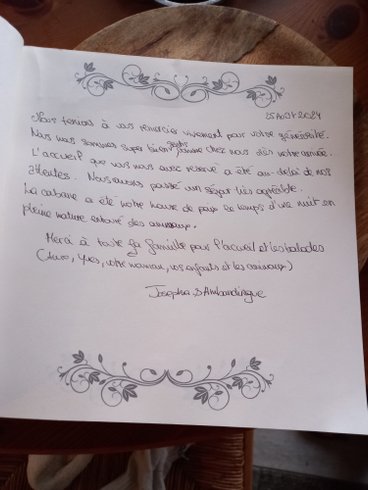 25 Août 2024
Nous tenions à vous remercier vivement pour votre générosité.
Nous nous sommes super bien sentis comme chez nous dès notre arrivée.
L'accueil que vous nous avez réservé a été au-delà de nos
attentes. Nous avons passé un séjour très agréable.
La cabane a été notre havre de paix le temps d'une nuit en
pleine nature entouré des animaux.
Merci à toute la famille pour l'accueil et les balades
(Yves, votre maman, vos enfants et les animaux)
Josepha